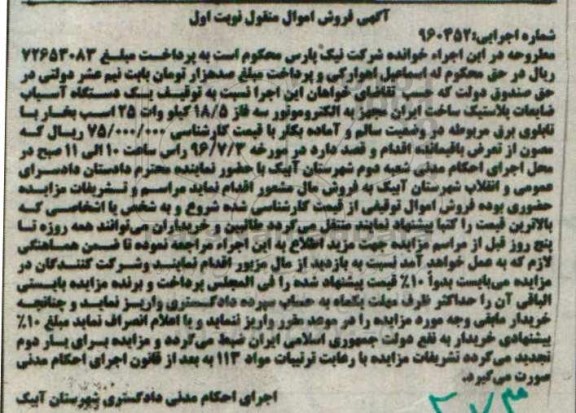 آگهی فروش اموال منقول نوبت اول
شماره اجرایی:۹۶۰۳۵۲
مطروحه در این اجراء خوانده شرکت نیک پارس محکوم است به پرداخت مبلغ ۷۲۶۵۳۰۸۳
ریال در حق محکوم له اسماعیل اهوارکی و پرداخت مبلغ صدهزار تومان بابت نیم عشر دولتی در
حق صندوق دولت که حسب تقاضای خواهان این اجرا نسبت به توقیف یک دستگاه آسیاب
ضایعات پلاستیک ساخت ایران مجهز به الکتروموتور سه فاز ۱۸/۵ کیلو وات ۲۵ اسب بخار با
تابلوی برق مربوطه در وضعیت سالم و آماده بکار با قیمت کارشناسی ۷۵/۰۰۰/۰۰۰ ریال که
مصون از تعرض باقیمانده اقدام و قصد دارد در مورخه ۹۶/۷/۳ راس ساعت ۱۰ الی ۱۱ صبح در
محل اجرای احکام مدنی شعبه دوم شهرستان آبیک با حضور نماینده محترم دادستان دادسرای
عمومی و انقلاب شهرستان آبیک به فروش مال مشعور اقدام نماید مراسم و تشریفات مزایده
حضوری بوده فروش اموال توقیفی از قیمت کارشناسی شده شروع و به شخص یا اشخاصی که
بالاترین قیمت را کتبا پیشنهاد نمایند منتقل می‌گردد طالبین و خریداران می‌توانند همه روزه تا
پنج روز قبل از مراسم مزایده جهت مزید اطلاع به این اجراء مراجعه نموده تا ضمن هماهنگی
لازم که به عمل خواهد آمد نسبت به بازدید از مال مزبور اقدام نمایند وشرکت کنندگان در
مزایده می‌بایست بدواً ۱۰٪ قیمت پیشنهاد شده را فی المجلس پرداخت و برنده مزایده بایستی
الباقی آن را حداکثر ظرف مهلت یکماه به حساب سپرده دادگستری واریز نماید و چنانچه
خریدار مابقی وجه مورد مزایده را در موعد مقرر واریز ننماید و یا اعلام انصراف نماید مبلغ ۱۰٪
پیشنهادی خریدار به نفع دولت جمهوری اسلامی ایران ضبط می‌گردد و مزایده برای بار دوم
تجدید می‌گردد تشریفات مزایده با رعایت ترتیبات مواد ۱۱۳ به بعد از قانون اجرای احکام مدنی
صورت می‌گیرد.
اجرای احکام مدنی دادگستری شهرستان آبیک